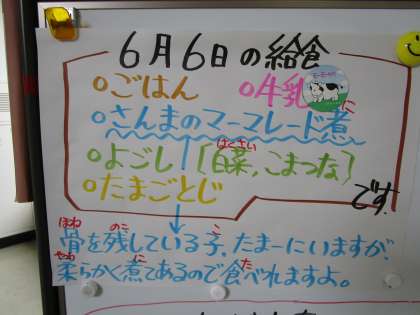 6月6日の給食
○ごはん ○牛乳
○さんまのマーマレード煮
○よごし〔白菜,こまつな〕
○たまごとじ
です。
骨を残している子、たまーにいますが、
柔らかく煮てあるので食べれますよ。